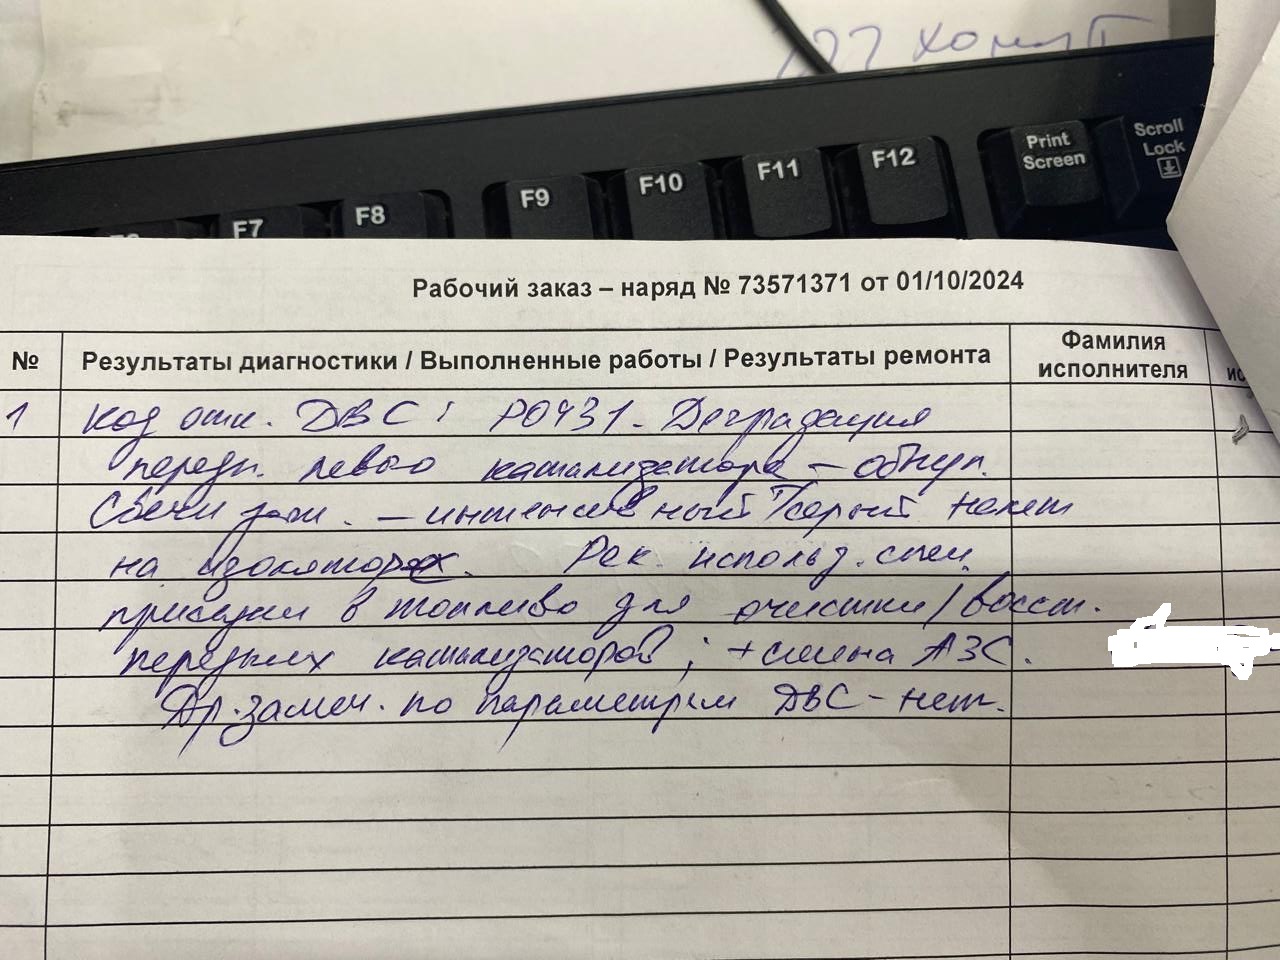 хомут
F7 F8 F9 F10 F11 F12 Print Screen Scroll Lock
Рабочий заказ – наряд № 73571371 от 01/10/2024
№ Результаты диагностики / Выполненные работы / Результаты ремонта Фамилия исполнителя
1 Код отк. ДВС: P0431. Деградация
передн. левого катализатора – обнул.
Свечи заж. – интенсивный серый налет
на изоляторах. Рек. использ. спец.
присадки в топливо для очистки/восст.
передних катализаторов; + смена АЗС.
Др. замеч. по параметрам ДВС – нет.